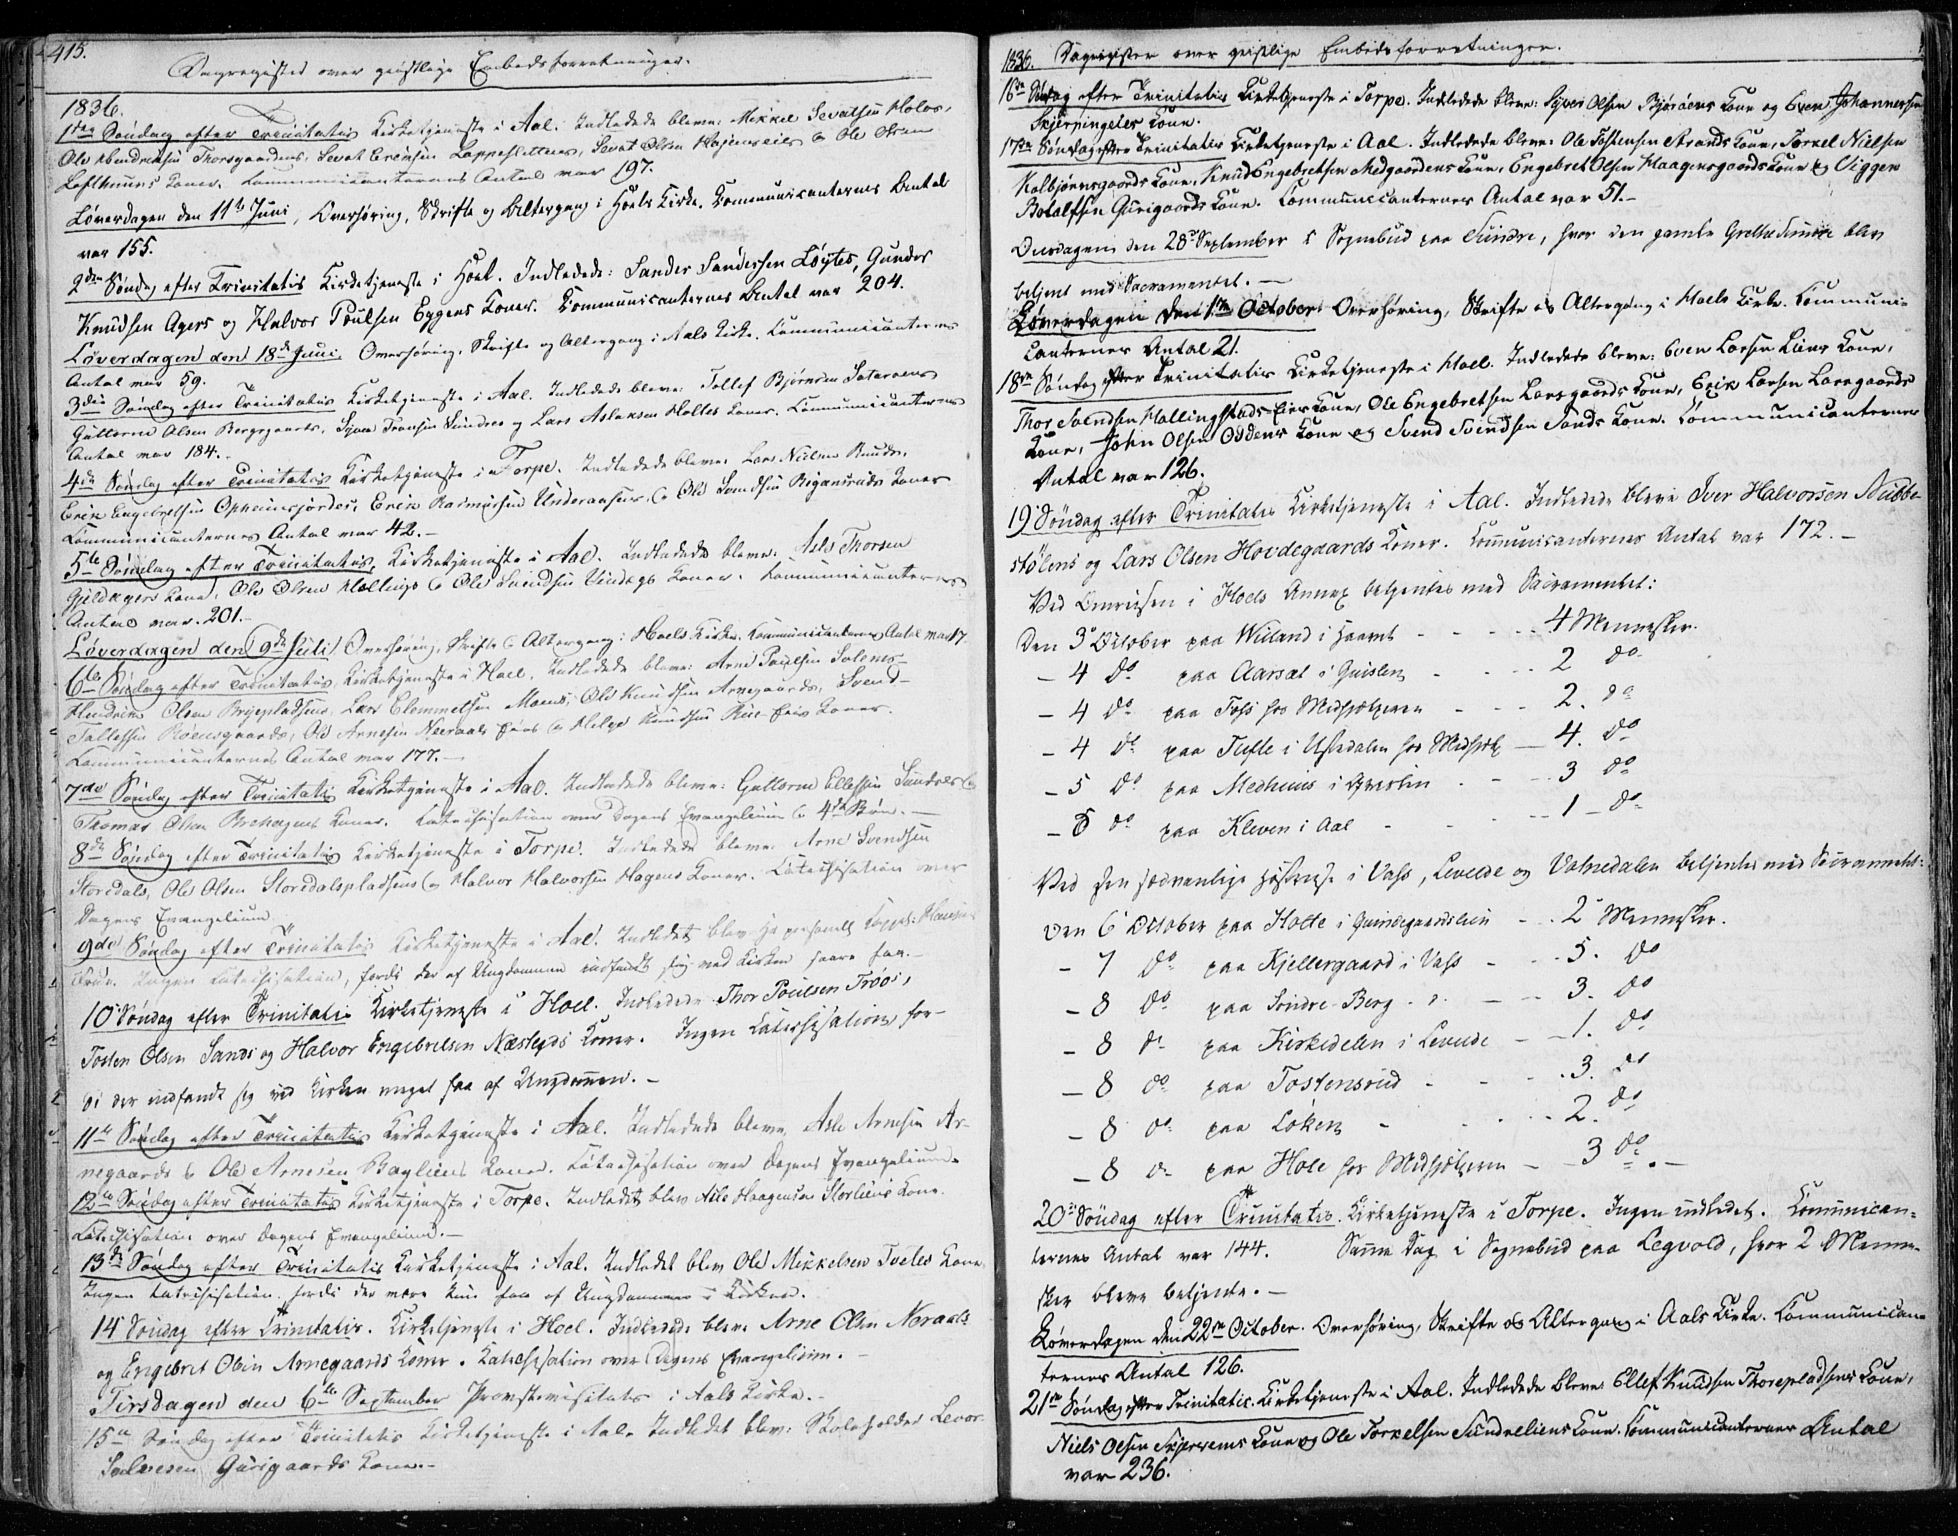 415.
Dagregister over geistlige Embedsforretninger.
1836.
1ste Søndag efter Trinitatis Kirketjeneste i Aal. Indledede bleve: Mikkel Sevatsen Holos,
Ole Hendriksen Thorsgaardens, Sevat Eriksen Lappeslettens, Sevat Olsen & Ole Olsen
Lofthuuus Koner. Kommunicanternes Antal var 197.
Løverdagen den 11te Juni, Overhøring, Skrifte og Altergang i Hoels Kirke. Kommunicanternes Antal
var 155.
2den Søndag efter Trinitatis Kirketjeneste i Hoel. Indledede: Sander Sandersen Løytes, Gunder
Knudsen Agers og Halvor Poulsen Eggens Koner. Kommunicanternes Antal var 204.
Løverdagen den 18de Juni, Overhøring, Skrifte og Altergang i Aals Kirke. Kommunicanternes
Antal var 59.
3die Søndag efter Trinitatis Kirketjeneste i Aal. Indledede bleve: Tollef Bjørnsen
Guttorm Olsen Bergsgaards, Syver Iversen Sundres og Lars Aslaksen Holtes Koner. Kommunicanternes
Antal var 184.
4de Søndag efter Trinitatis Kirketjeneste i Torpe. Indledede bleve: Lars Nielsen Ruuds,
Erik Engebretsen Opheimsjordes, Erik Rasmusen Underaasens & Ole Svendsen Koner
Kommunicanternes Antal var 42.-
5te Søndag efter Trinitatis, Kirketjeneste i Aal. Indledede bleve: Asle Thorsen
Gjeldagers Kone, Ole Olsen Hallings & Ole Svendsen Koner. Kommunicanternes
Antal var 201.-
Løverdagen den 9de Juli Overhøring, Skrifte & Altergang i Hoels Kirke. Kommunicanternes Antal var 17
6te Søndag efter Trinitatis, Kirketjeneste i Hoel. Indledede bleve: Arne Paulsen
Hendrik Olsen Bryepladsens, Lars Clemmetsen Moens, Ole Knudsen Arnegaards, Svend
Tollefsen Roensgaards, Ole Arnesen Neeraals Eies & Helge Knudsen Koner.
Kommunicanternes Antal var 177.-
7de Søndag efter Trinitatis Kirketjeneste i Aal. Indledede bleve: Guttorm Ellefsen Sundres &
Thomas Olsen Brehagens Koner. Katechisation over Dagens Evangelium & 4de Bøn.-
8de Søndag efter Trinitatis Kirketjeneste i Torpe. Indledede bleve: Arne Svendsen
Storedals, Ole Olsen Storedalspladsens & Halvor Halvorsen Hagens Koner. Katechisation over
Dagens Evangelium
9de Søndag efter Trinitatis Kirketjeneste i Aal. Indledet blev Hansens
Frue. Ingen Katechisation, fordi der af Ungdommen indfandt sig ved Kirken saare faa.-
10' Søndag efter Trinitatis Kirketjeneste i Hoel. Indledede Thor Poulsen Trøos,
Tosten Olsen Sands og Halvor Engebretsen Næslegds Koner. Ingen Katechisation for-
di der indfandt sig ved Kirken meget faa af Ungdommen.-
11te Søndag efter Trinitatis Kirketjeneste i Aal. Indledede bleve, Asle Arnesen Ar-
negaards & Ole Arnesen Bagliens Koner. Katechisation over Dagens Evangelium
12te Søndag efter Trinitatis Kirketjeneste i Torpe. Indledet blev Asle Haagensen Storliens Kone.
Katechisation over Dagens Evangelium.-
13de Søndag efter Trinitatis Kirketjeneste i Aal. Indledet blev Ole Mikkelsen Tvetes Kone.
Ingen Katechisation fordi der vare kun faa af Ungdommen i Kirken.
14 Søndag efter Trinitatis. Kirketjeneste i Hoel. Indledede bleve Arne Olsen Neraals
og Engebret Olsen Arnegaards Koner. Katechisation over Dagens Evangelium.-
Tirsdagen den 6te September Provstevisitats i Aals Kirke.-
15de Søndag efter Trinitatis Kirketjeneste i Aal. Indledet blev: Skoleholder Levor
Guligaards Kone.-
1836. Dagregister over geistlige Embedsforretninger.
16de Søndag efter Trinitatis Kirketjeneste i Torpe. Indledede bleve: Syver Olsen Bjøraaens Kone og Even Johannesen
Skjerpingeles Kone.
17de Søndag efter Trinitatis Kirketjeneste i Aal. Indledede bleve: Ole Tostensen Strands Kone, Torkel Nielsen
Kolbjørnsgaards Kone, Knud Engebretsen Medgaardens Kone, Engebret Olsen Haagensgaards Kone og Viggen
Botolfsen Gurigaards Kone. Communicanternes Antal var 51.-
Onsdagen den 28de September i Sognebud paa Sundre, hvor den gamle Grethe Sundre blev
betjent med Sacramentet.-
Løverdagen den 1ste October Overhøring, Skrifte og Altergang i Hoels Kirke. Communi-
canternes Antal 21.
18de Søndag efter Trinitatis Kirketjeneste i Hoel. Indledede bleve: Even Larsen Liens Kone,
Thor Svendsen Hallingstads-Eier Kone, Ole Engebretsen Larsgaards Kone, Erik Larsen Larsgaards
Kone, John Olsen Oddens Kone og Svend Svendsen Sands Kone. Communicanternes
Antal var 126.
19 Søndag efter Trinitatis Kirketjeneste i Aal. Indledede bleve Iver Halvorsen Nubbe-
stølens og Lars Olsen Hovdegaards Koner. Communicanternes Antal var 172.-
Ved Omreisen i Hoels Annex betjentes med Sacramentet:
Den 3' October paa Villand i Haavet - - - 4 Mennesker.
- 4 do paa Aarset i Guislien - - - 2 do
- 4 do paa Toss hos Midskolen - - - 2. do
- 4 do paa Tufte i Ustedalen for Midskolen - 4. do
- 5 do paa Medhuus i - - - 3 do
- 5 do paa Kleven i Aal - - - 1 do
Ved den sædvanlige Høstreise i Vats, Leveld og Votnedalen betjentes med Sacramentet:
Den 6 October paa Holte i - - 2 Mennesker.
- 7 do paa Kjellergaard i Vats - - 5. do
- 8 do paa Søndre-Berg - - - 3. do
- 8 do paa Kirkedelen i Levelde - 1. do
- 8 do paa Tostensrud - - - 3. do
- 8 do paa Løken - - - 2. do
- 8 do paa Hole for Midskolen - 3 do.-
20de Søndag efter Trinitatis. Kirketjeneste i Torpe. Ingen indledet. Communican-
ternes Antal var 144. Samme Dag i Sognebud paa Legvold, hvor 2 Menne-
sker bleve betjente.-
Løverdagen den 22de October. Overhøring, Skrifte og Altergang i Aals Kirke. Communican-
ternes Antal 126.
21de Søndag efter Trinitatis. Kirketjeneste i Aal. Indledede bleve: Ellef Knudsen Thorepladsens Kone,
Niels Olsen Skjerveems Kone og Ole Torkelsen Sundreliens Kone. Communicanternes Antal
var 236.